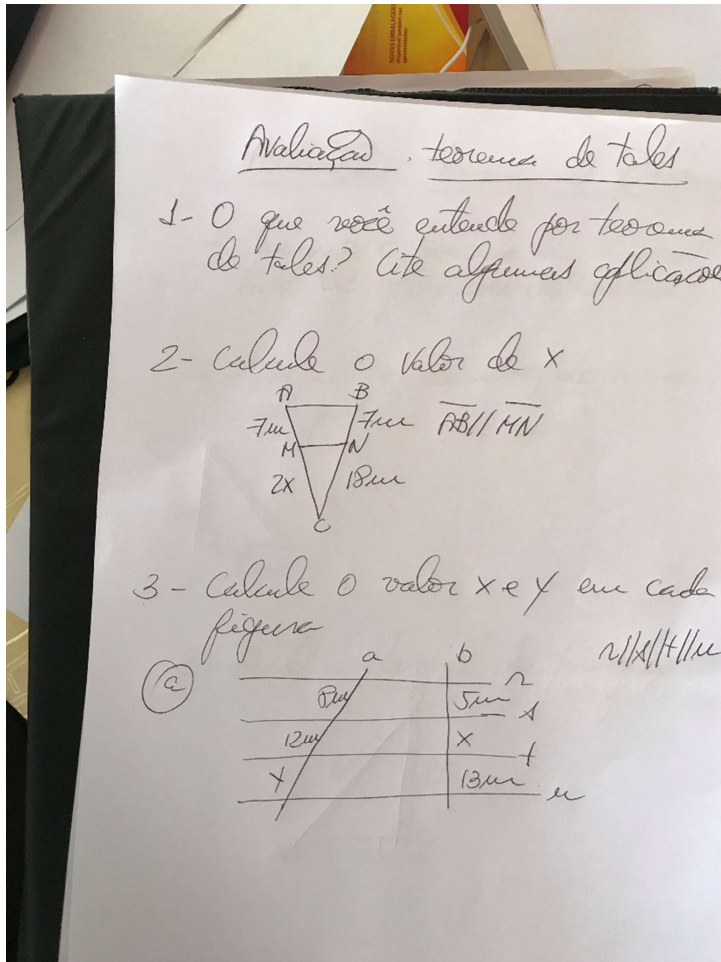 NOVAS EMBALAGENS
Avaliação. teorema de tales
1- O que você entende por teorema
de tales? Cite algumas aplicações
2- Calcule o valor de x
A B
7m 7m AB//MN
M N
2x 18m
C
3- Calcule o valor x e y em cada
figura
r//s//t//u
a b
a
r
8m 5m
s
12m x
t
y 13m
u